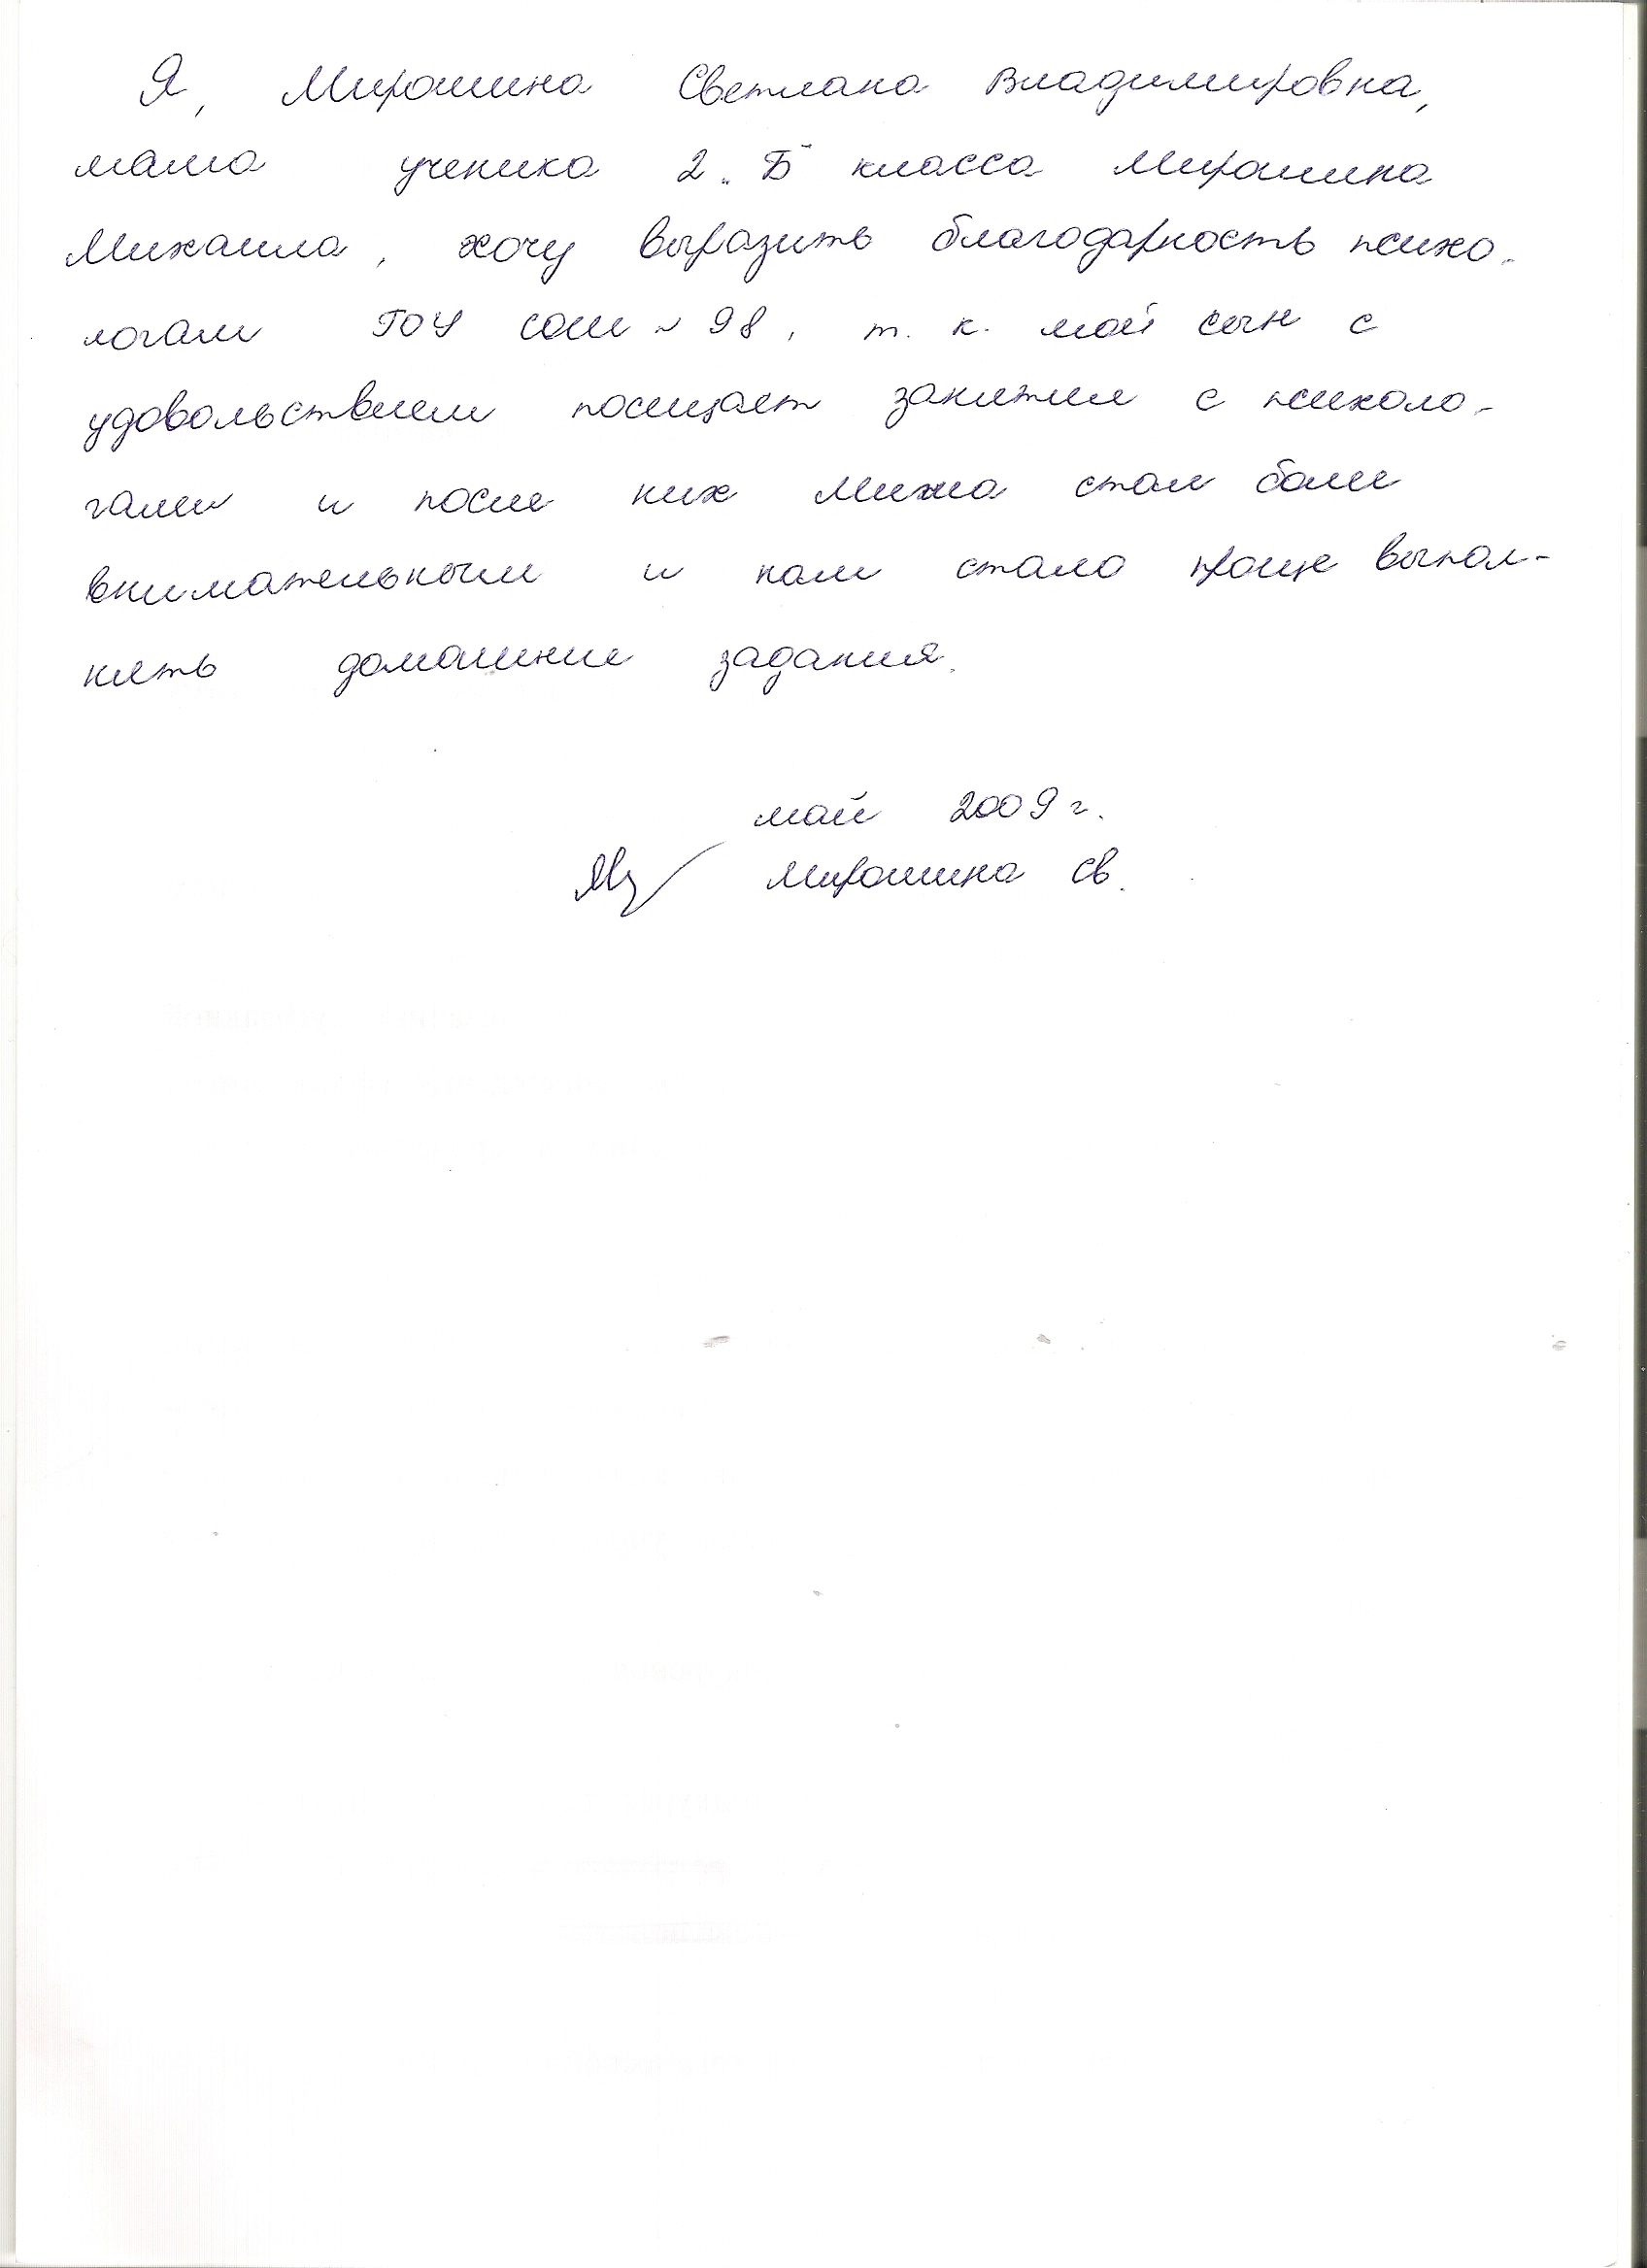 Я, Мирошина Светлана Владимировна,
мама ученика 2 „Б" класса Мирошина
Михаила, хочу выразить благодарность психо-
логам ГОУ СОШ № 98, т. к. мой сын с
удовольствием посещает занятия с психоло-
гами и после них Миша стал более
внимательным и нам стало проще выпол-
нять домашние задания.
май 2009 г.
Мирошина СВ.